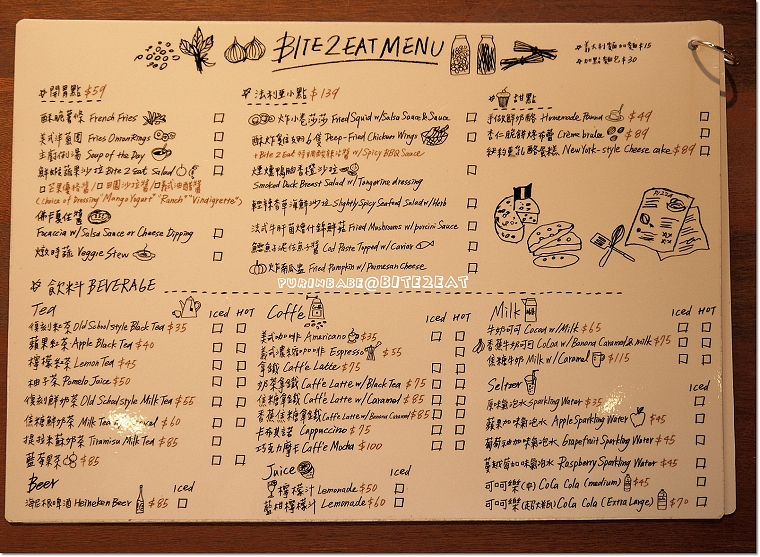 BITE2EAT MENU
義大利麵加麵$15
加點麵包$30
開胃點 $59
酥脆薯條 French Fries
美式洋蔥圈 Fries Onion Rings
主廚例湯 Soup of the Day
鮮蝦蘋果沙拉 Bite 2 Eat Salad
芒果優格醬/田園沙拉醬/義式油醋醬
(choice of Dressing "Mango Yogurt" "Ranch" "Vindigrette")
佛卡夏佐醬
Focaccia w/Salsa Sauce or Cheese Dipping
燉時蔬 Veggie Stew
法利亞小點 $139
炸小卷莎莎 Fried Squid w/Salsa Sauce & Sauce
Deep-Fried Chicken Wings
+Bite 2 Eat w/Spicy BBQ Sauce
煙燻鴨胸香橙沙拉
Smoked Duck Breast Salad w/ Tangerine dressing
輕辣香草海鮮沙拉 Slightly Spicy Seafood Salad w/Herb
法式牛肝菌燴什錦鮮菇 Fried Mushrooms w/porcini Sauce
鱈魚子泥佐魚子醬 Cod Paste Topped w/Caviar
炸南瓜 Fried Pumpkin w/Parmesan Cheese
甜點
手做鮮奶酪 Homemade Panna $49
杏仁脆餅烤布蕾 Crème brulee $89
紐約重乳酪蛋糕 New York-style Cheese cake $89
PIZZA
PURINBABE@BITE2EAT
飲料 BEVERAGE
Tea Iced HOT
復刻紅茶 Old School style Black Tea $35
蘋果紅茶 Apple Black Tea $40
檸檬紅茶 Lemon Tea $45
柚子茶 Pomelo Juice $50
復刻鮮奶茶 Old School style Milk Tea $55
焦糖鮮奶茶 Milk Tea $60
提拉米蘇奶茶 Tiramisu Milk Tea $85
藍莓果茶 $85
Beer Iced
海尼根啤酒 Heineken Beer $85
Caffe Iced HOT
美式咖啡 Americano $35
義式濃縮咖啡 Espresso $55
拿鐵 Caffe Latte $75
奶茶拿鐵 Caffe Latte w/Black Tea $75
焦糖拿鐵 Caffe Latte w/Caramel $85
香蕉焦糖拿鐵 Caffe Latte w/Banana Caramel $85
卡布其諾 Cappuccino $75
巧克力摩卡 Caffe Mocha $100
Juice Iced
檸檬汁 Lemonade $50
藍柑檸檬汁 Lemonade $60
Milk Iced HOT
牛奶可可 Cocoa w/Milk $65
香蕉牛奶可可 CoCoa w/Banana Caramel & milk $75
焦糖牛奶 Milk w/Caramel $115
Seltzer Iced
原味氣泡水 Sparkling Water $35
蘋果加味氣泡水 Apple Sparkling Water $45
葡萄柚加味氣泡水 Grapefruit Sparkling Water $45
蔓越莓加味氣泡水 Raspberry Sparkling Water $45
可口可樂(中) CoCa Cola (medium) $45
可口可樂(超大瓶) CoCa Cola (Extra Large) $70